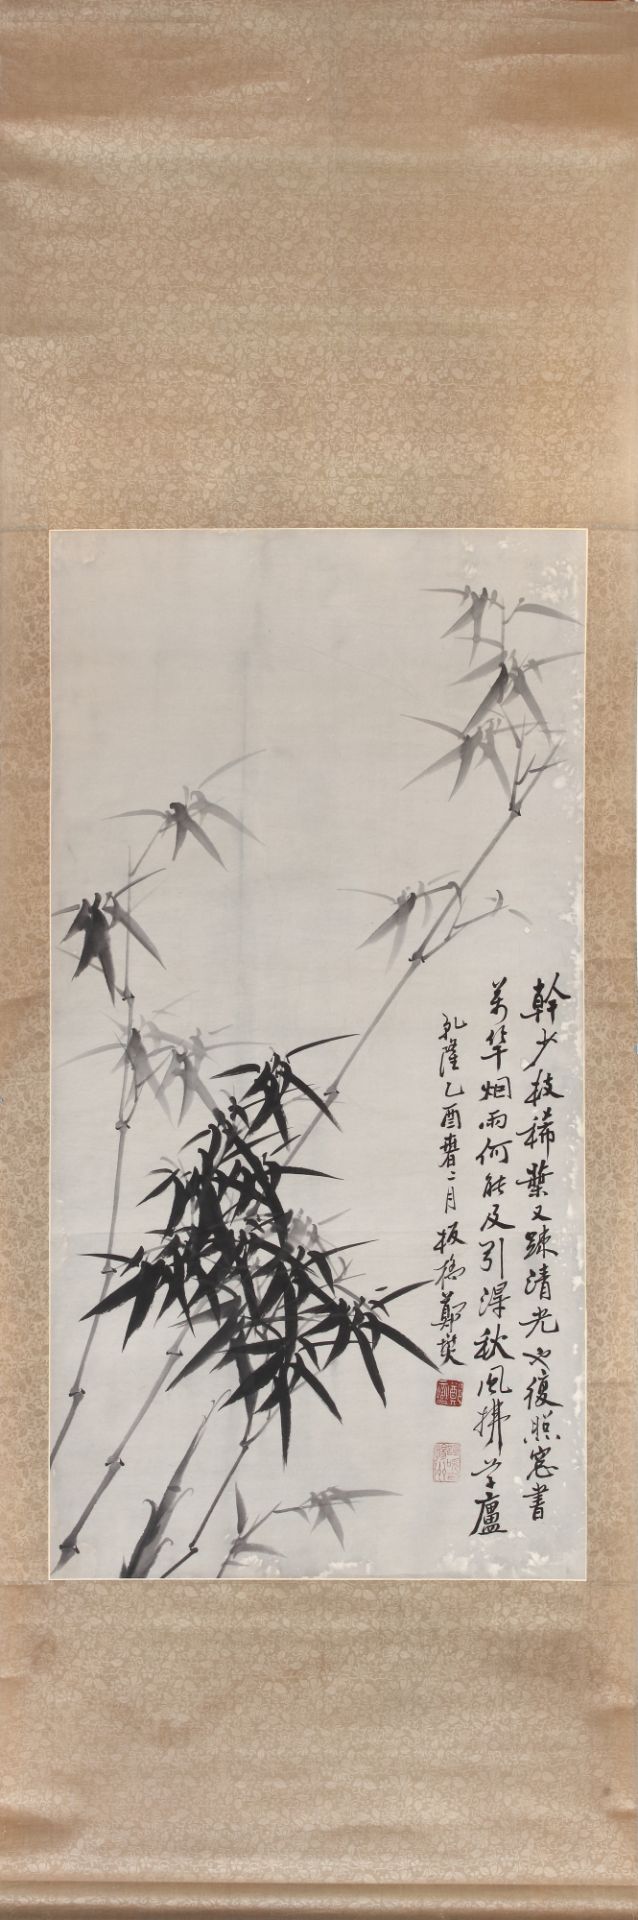 幹少枝稀葉又疎清光也復照窓書
萬竿烟雨何能及引得秋風拂草廬
乳隆乙酉春二月板橋鄭燮